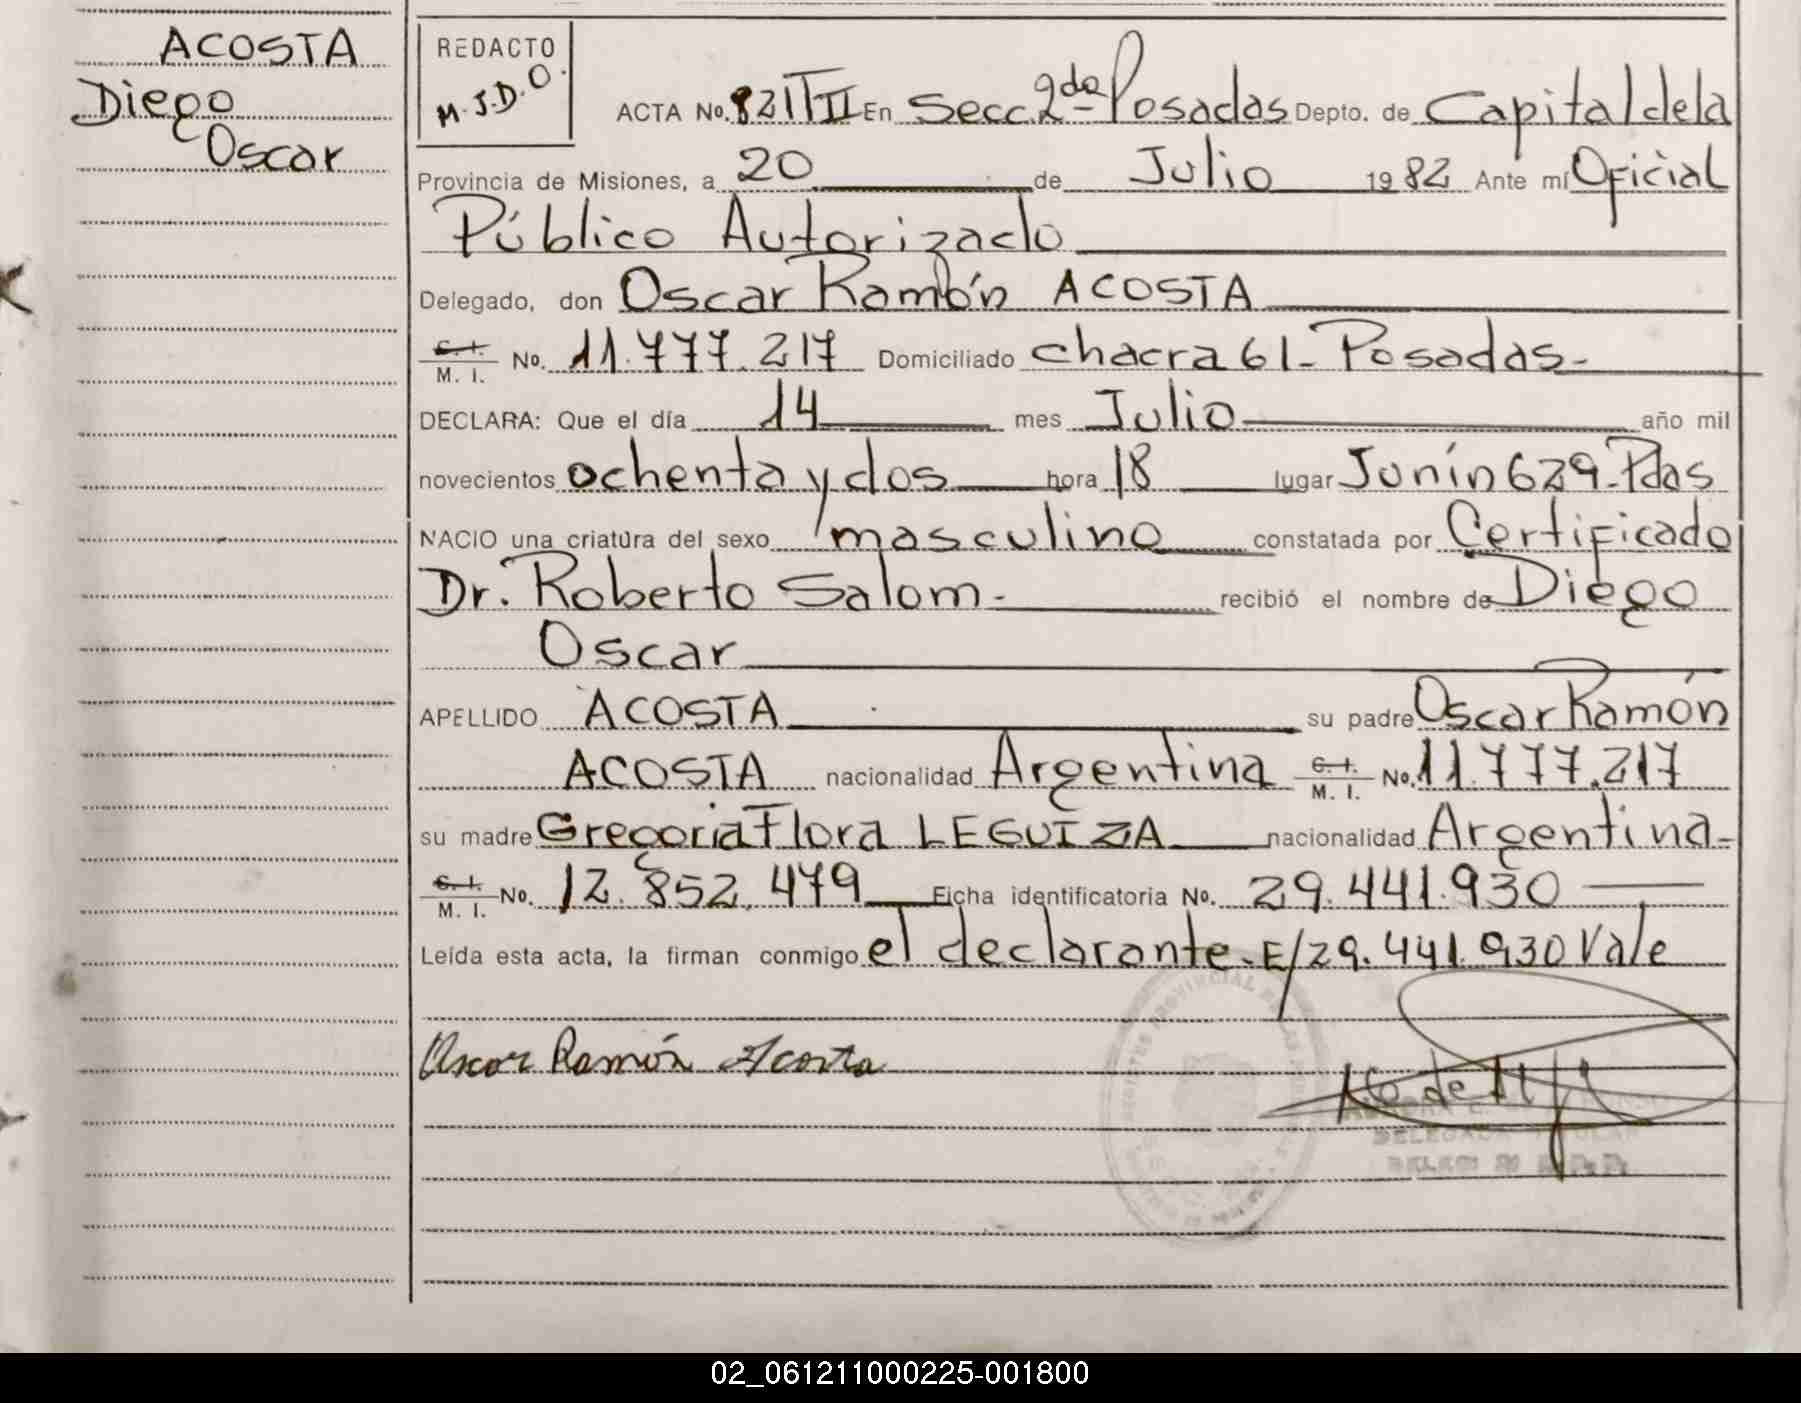 ACOSTA
Diego
Oscar
REDACTO
M.J.D.O.
ACTA No. 821 T II En Secc. 2da Posadas Depto. de Capital de la
Provincia de Misiones, a 20 de Julio 1982 Ante mí Oficial
Público Autorizado
Delegado, don Oscar Ramón ACOSTA
C. I.
M. I. No. 11.777.217 Domiciliado chacra 61- Posadas-
DECLARA: Que el día 14 mes Julio año mil
novecientos ochenta y dos hora 18 lugar Junín 629-Pdas
NACIO una criatura del sexo masculino constatada por Certificado
Dr. Roberto Salom- recibió el nombre de Diego
Oscar
APELLIDO ACOSTA su padre Oscar Ramón
ACOSTA nacionalidad Argentina C. I. M. I. No. 11.777.217
su madre Gregoria Flora LEGUIZA nacionalidad Argentina-
C. I.
M. I. No. 12.852.479 Ficha identificatoria No. 29.441.930
Leída esta acta, la firman conmigo el declarante-E/29.441.930 Vale
Oscar Ramón Acosta
DELEGADA TITULAR
02_061211000225-001800